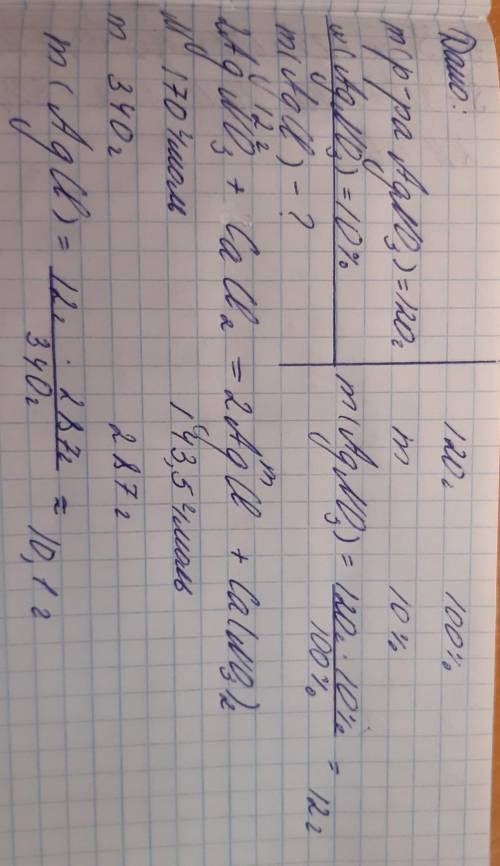 Дано:
m(р-ра AgNO3) = 120г
w(AgNO3) = 10%
m(AgCl) - ?
120г 100%
m 10%
m(AgNO3) = 120г · 10% / 100% = 12г
12г m
2AgNO3 + CaCl2 = 2AgCl + Ca(NO3)2
M 170 г/моль 143,5 г/моль
m 340г 287г
m(AgCl) = 12г · 287г / 340г ≈ 10,1г